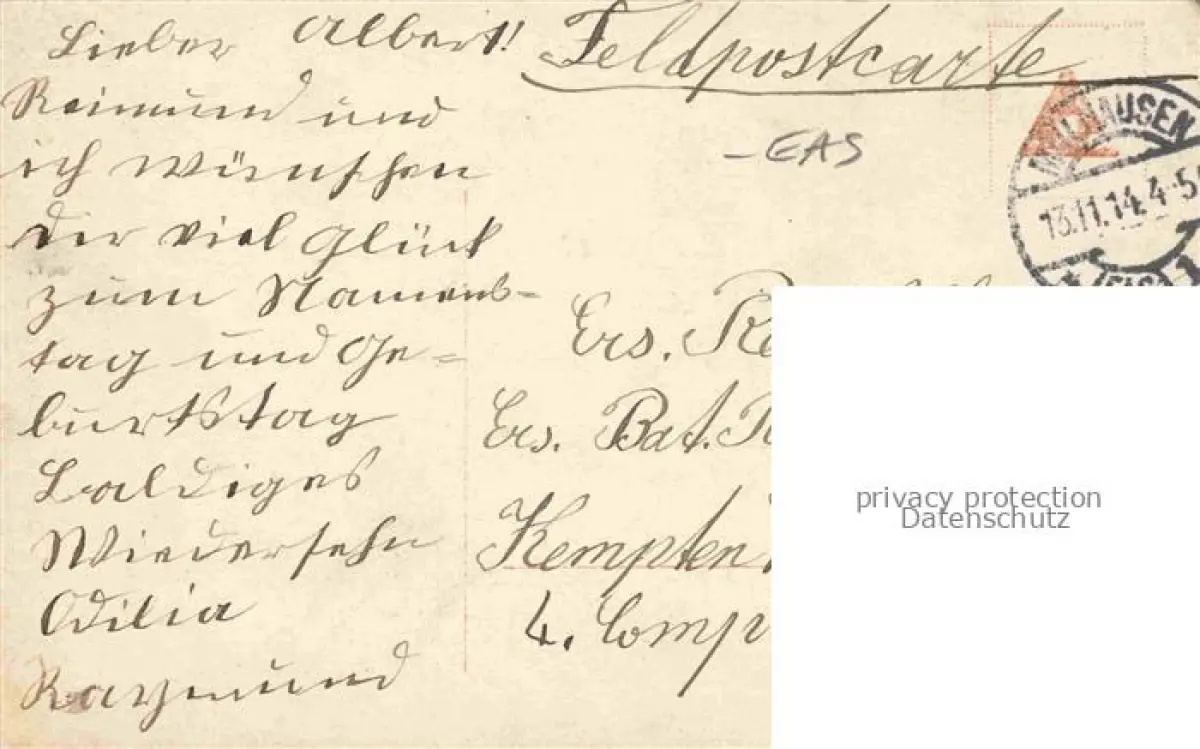 Lieber Albert!
Reimund und
ich wünschen
Dir viel Glück
zum Namens-
tag und Ge-
burtstag
Baldiges
Wiedersehn
Odilia
Raymund
Feldpostcarte
- EAS
MÜLHAUSEN
13.11.14. 4-5
1
Ers.
Ers. Bat.
Kempten
4. Comp
privacy protection
Datenschutz